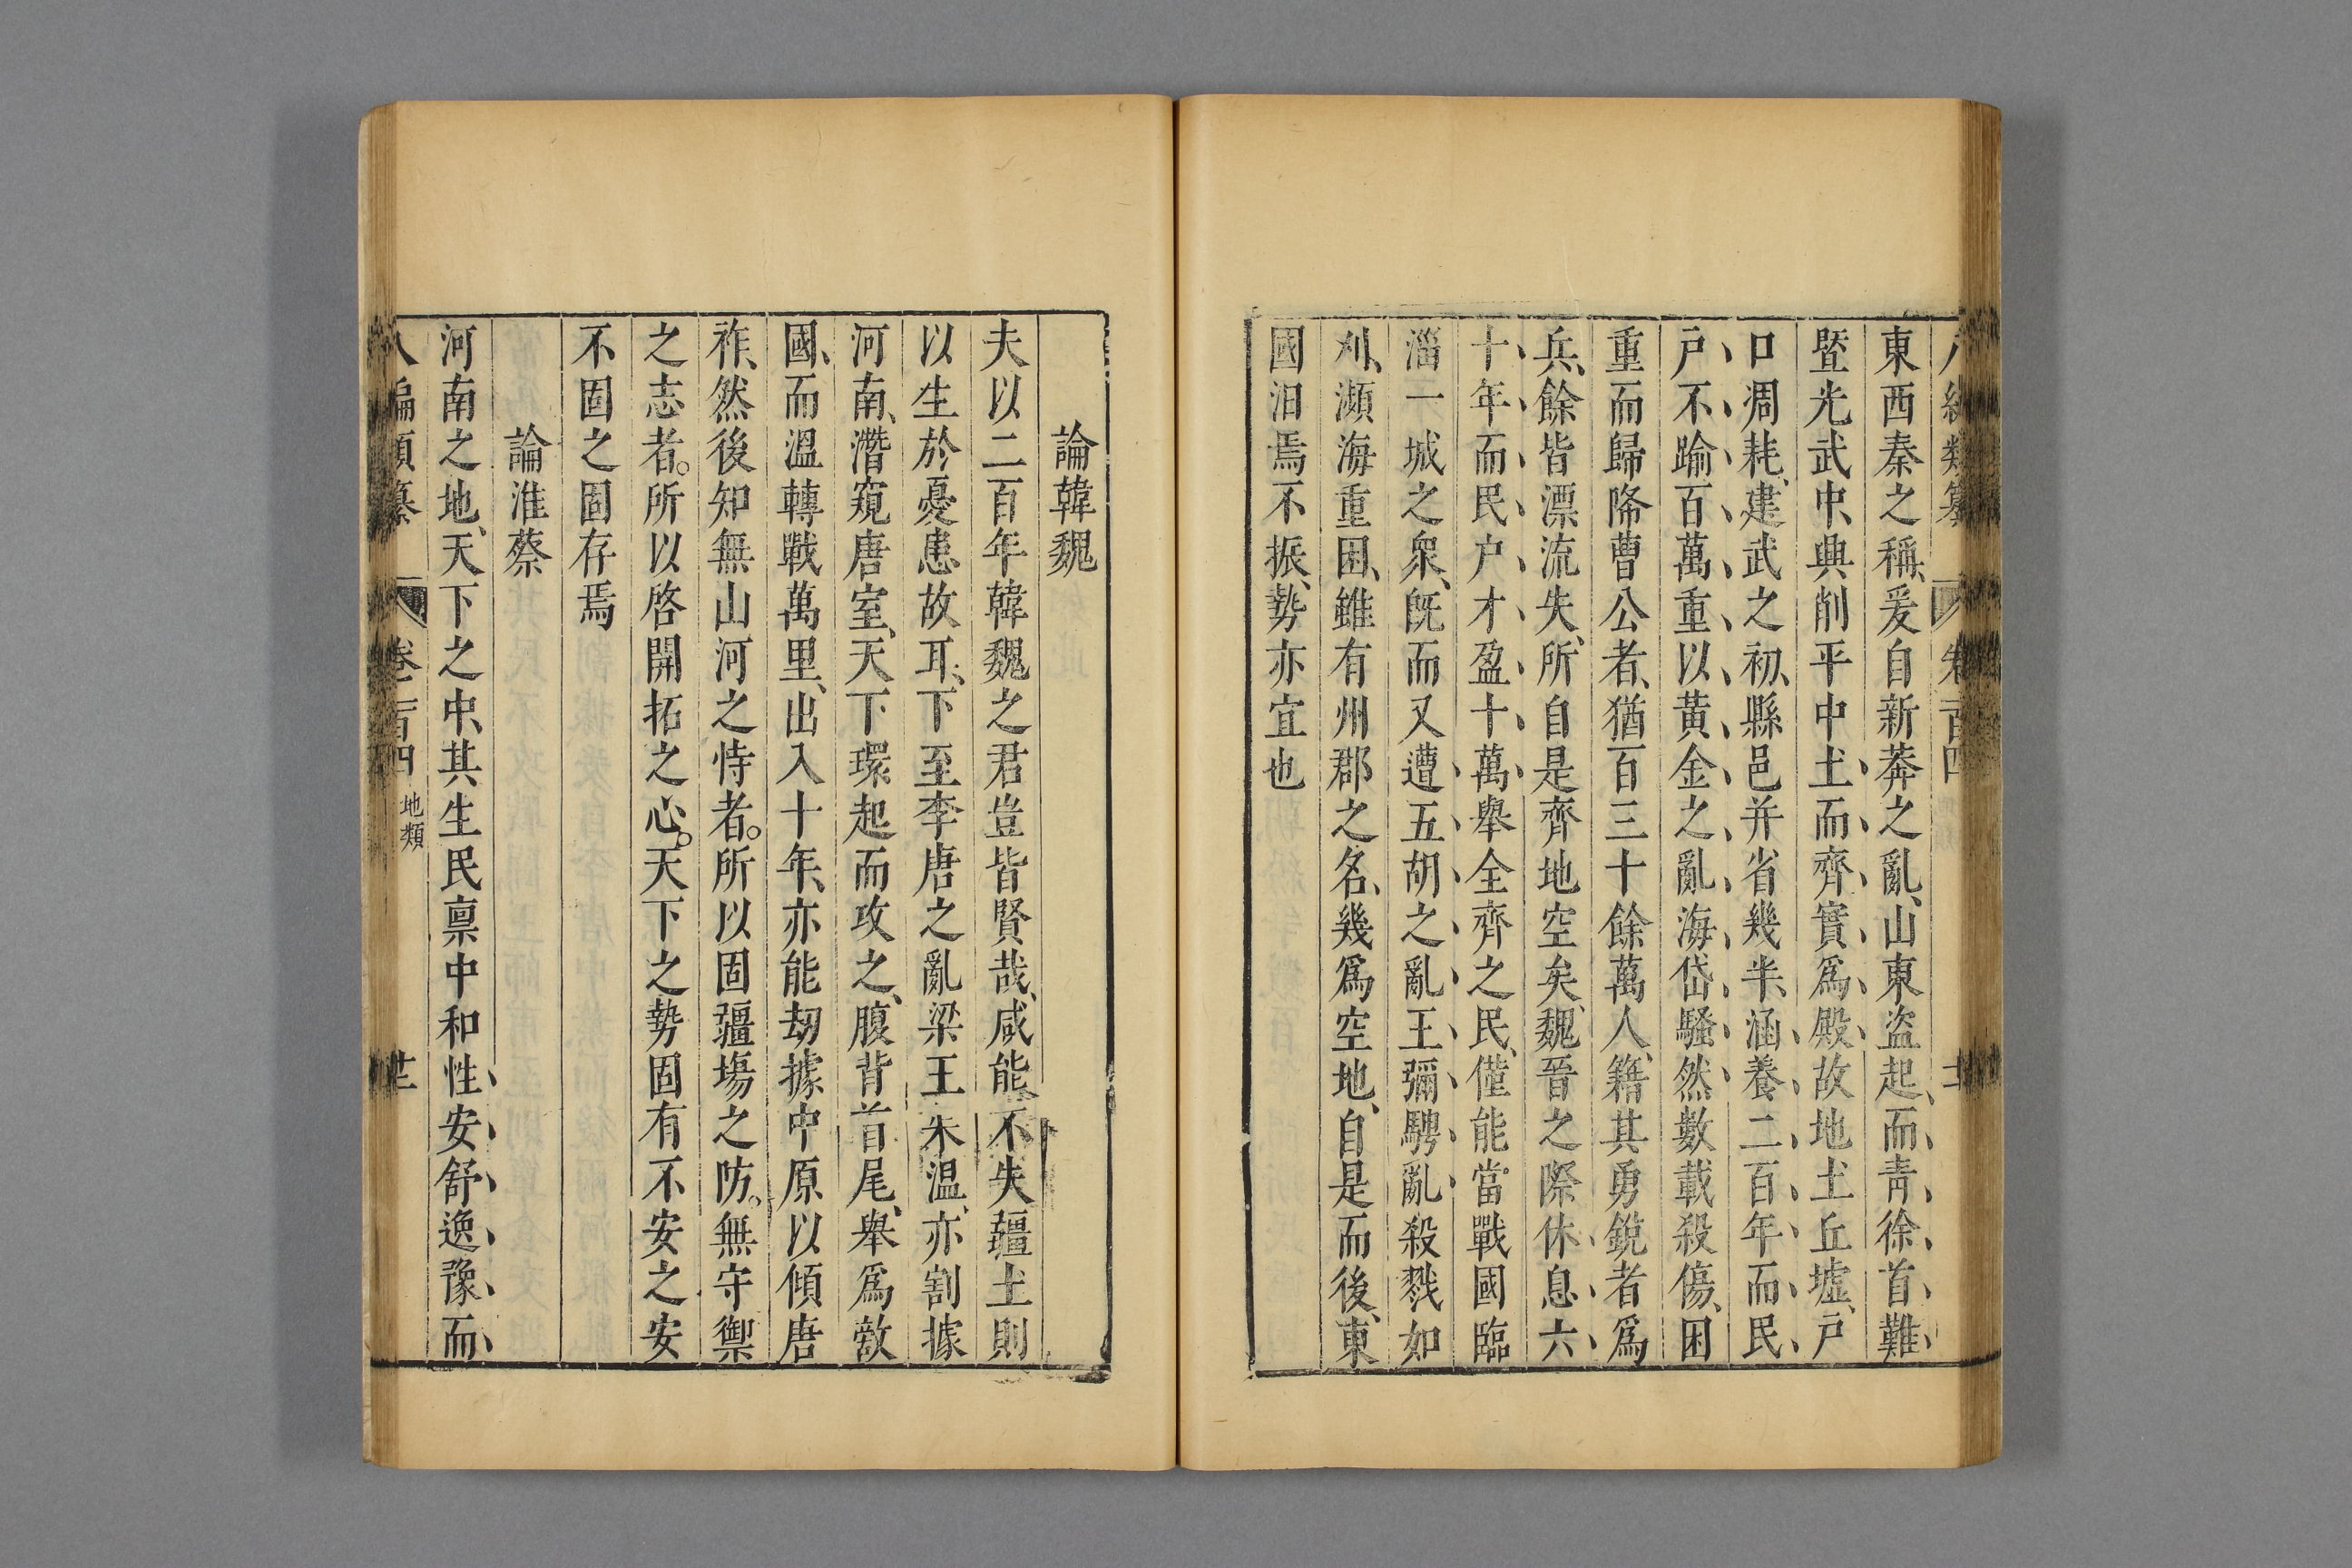 東西秦之稱、爰自新莽之亂、山東盜起、而青徐首難
暨光武中興削平中土而齊實爲殿故地土丘墟、戸
口凋耗、建武之初、縣邑并省幾半、涵養二百年而民
戸不踰百萬重以黃金之亂海岱騷然數載殺傷、困
重而歸降曹公者、猶百三十餘萬人、籍其勇銳者爲
兵、餘皆漂流失所、自是齊地空矣、魏晉之際休息六
十年而民户才盈十萬舉全齊之民、僅能當戰國臨
淄一城之衆、旣而又遭五胡之亂王彌騁亂殺戮如
刈、瀕海重困、雖有州郡之名、幾爲空地、自是而後、東
國汨焉不振、勢亦宜也
論韓魏
夫以二百年韓魏之君豈皆賢哉、咸能不失疆土則
以生於憂患故耳、下至李唐之亂梁王朱溫、亦割據
河南、潛窺唐室、天下環起而攻之、腹背首尾、舉爲敵
國、而溫轉戰萬里、出入十年、亦能刼據中原以傾唐
祚、然後知無山河之恃者。所以固疆場之防。無守禦
之志者。所以啓開拓之心。天下之勢固有不安之安
不固之固存焉
論淮蔡
河南之地、天下之中、其生民禀中和性安舒逸豫而
八編類纂 卷一百四 地類